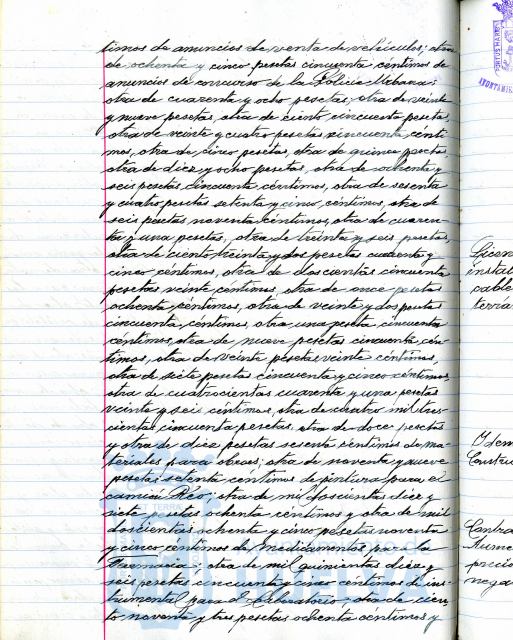 timos de anuncios de venta de vehículos; otra
de ochenta y cinco pesetas cincuenta céntimos de
anuncios de concurso de la Policía Urbana;
otra de cuarenta y ocho pesetas, otra de veinte
y nueve pesetas, otra de ciento cincuenta pesetas,
otra de veinte y cuatro pesetas cincuenta cénti-
mos, otra de cinco pesetas, otra de quince pesetas
otra de diez y ocho pesetas, otra de ochenta y
seis pesetas cincuenta céntimos, otra de sesenta
y cuatro pesetas setenta y cinco céntimos, otra de
seis pesetas noventa céntimos, otra de cuaren-
ta y una pesetas, otra de treinta y seis pesetas,
otra de ciento treinta y dos pesetas cuarenta y
cinco céntimos, otra de doscientas cincuenta
pesetas veinte céntimos, otra de once pesetas
ochenta céntimos, otra de veinte y dos pesetas
cincuenta céntimos, otra una peseta cincuenta
céntimos, otra de nueve pesetas cincuenta cén-
timos, otra de veinte pesetas veinte céntimos,
otra de siete pesetas cincuenta y cinco céntimos,
otra de cuatrocientas cuarenta y una pesetas
veinte y seis céntimos, otra de cuatro mil tres-
cientas cincuenta pesetas, otra de doce pesetas
y otra de diez pesetas sesenta céntimos de ma-
teriales para obras; otra de noventa y nueve
pesetas setenta céntimos de pintura para el
camión Reo; otra de mil doscientas diez y
siete pesetas ochenta céntimos y otra de mil
doscientas ochenta y cinco pesetas noventa
y cinco céntimos de medicamentos para la
Farmacia; otra de mil quinientas diez y
seis pesetas cincuenta y cinco céntimos de ins-
trumental para el Laboratorio, otra de cien-
to noventa y tres pesetas ochenta céntimos y
Licen
instal
cable
terrá
Idem
Constru
Contra
Sumi
precio
nega